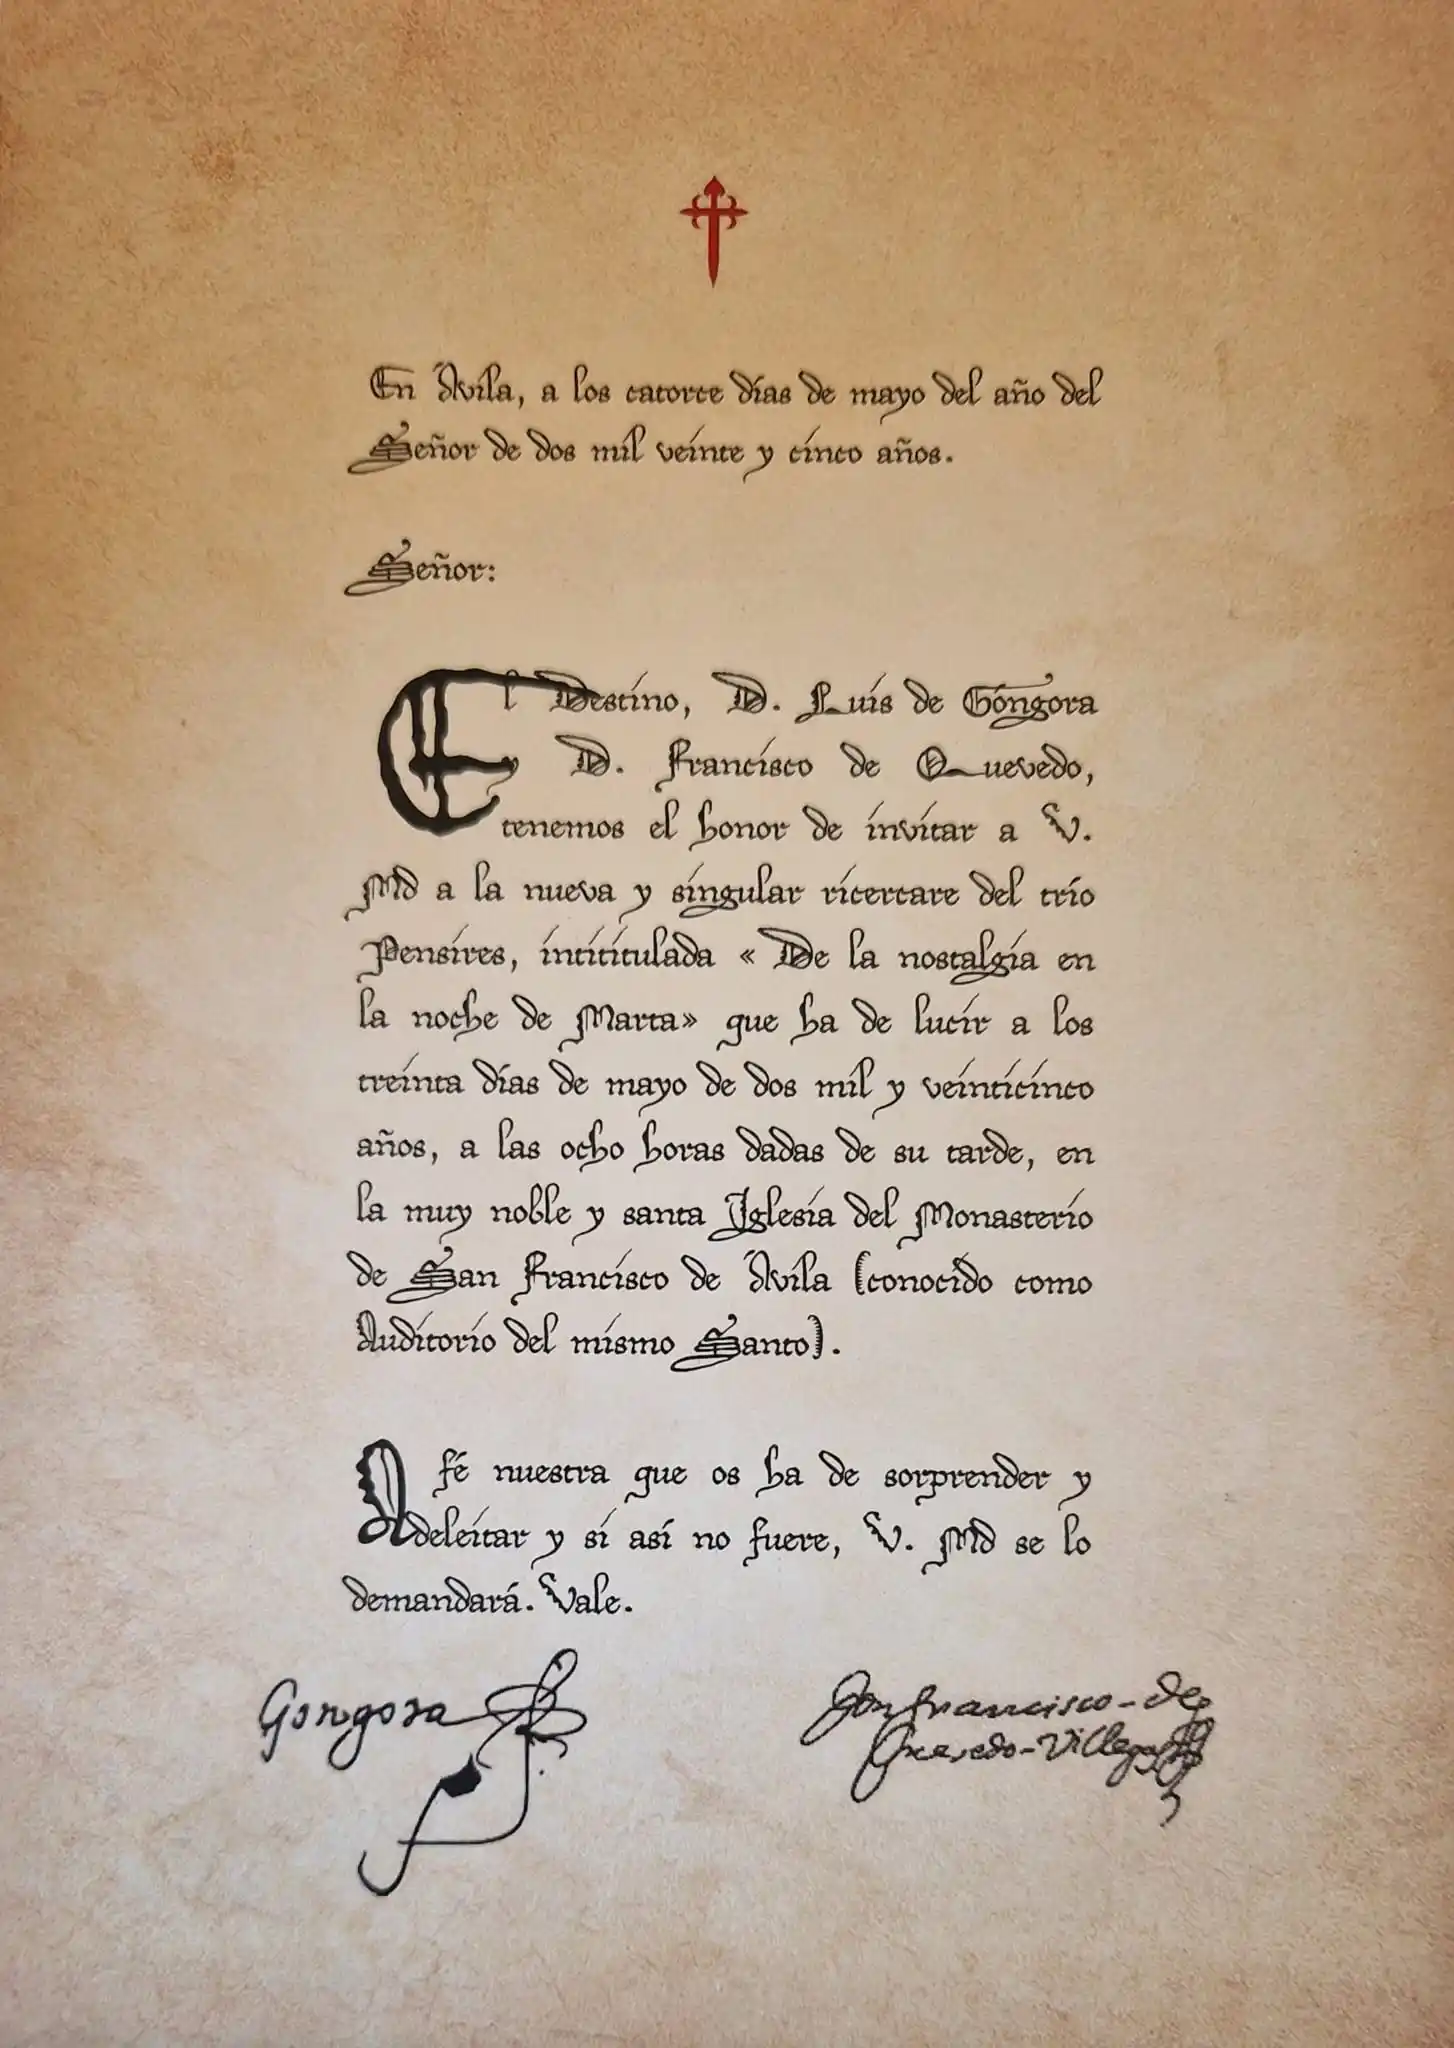 En Ávila, a los catorce días de mayo del año del
Señor de dos mil veinte y cinco años.
Señor:
El Destino, D. Luis de Góngora
y D. Francisco de Quevedo,
tenemos el honor de invitar a V.
Md a la nueva y singular ricercare del trío
Pensires, intititulada « De la nostalgia en
la noche de Marta» que ha de lucir a los
treinta días de mayo de dos mil y veinticinco
años, a las ocho horas dadas de su tarde, en
la muy noble y santa Iglesia del Monasterio
de San Francisco de Ávila (conocido como
Auditorio del mismo Santo).
A fé nuestra que os ha de sorprender y
deleitar y si así no fuere, V. Md se lo
demandará. Vale.
Gongora
Don francisco-de
Quevedo-Villegas